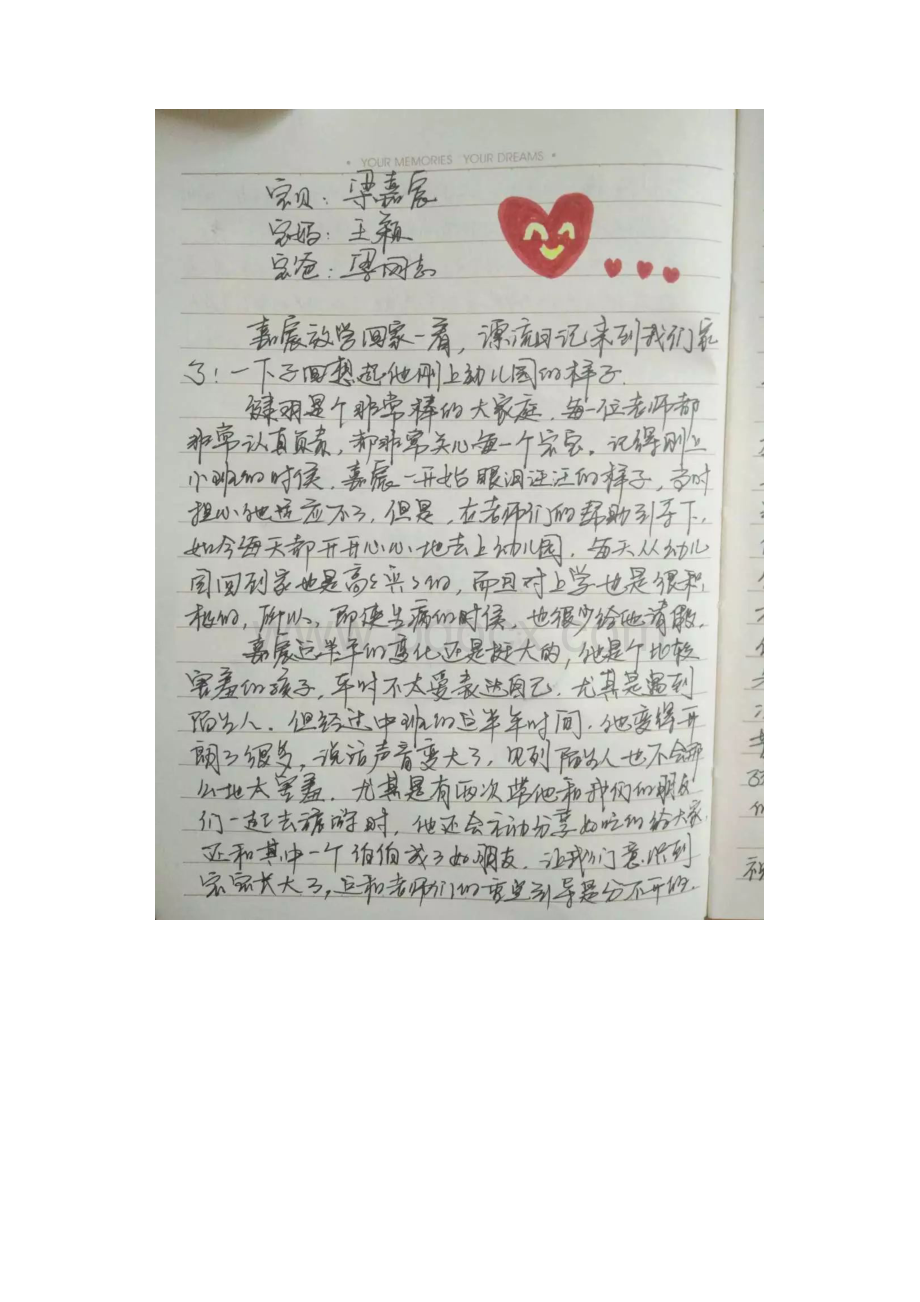 • YOUR MEMORIES YOUR DREAMS •
宝贝：梁嘉宸
宝妈：王颖
宝爸：梁同志
嘉宸放学回家一看，漂流日记来到我们家
了！一下子回想起他刚上幼儿园的样子.
键羽是个非常棒的大家庭．每一位老师都
非常认真负责，都非常关心每一个宝宝。记得刚上
小班的时候．嘉宸一开始眼泪汪汪的样子，当时
担心他适应不了，但是，在老师们的帮助引导下，
如今每天都开开心心地去上幼儿园．每天从幼儿
园回到家也是高高兴兴的，而且对上学也是很积
极的，所以，即使生病的时候，也很少给他请假．
嘉宸这半年的变化还是挺大的，他是个比较
害羞的孩子，平时不太爱表达自己．尤其是遇到
陌生人．但经过中班的这半年时间．他变得开
朗了很多，说话声音变大了，见到陌生人也不会那
么地太害羞．尤其是有两次带他和我们的朋友
们一起去旅游时，他还会主动分享好吃的给大家．
还和其中一个伯伯成了好朋友．让我们意识到
宝宝长大了，这和老师们的 引导是分不开的．